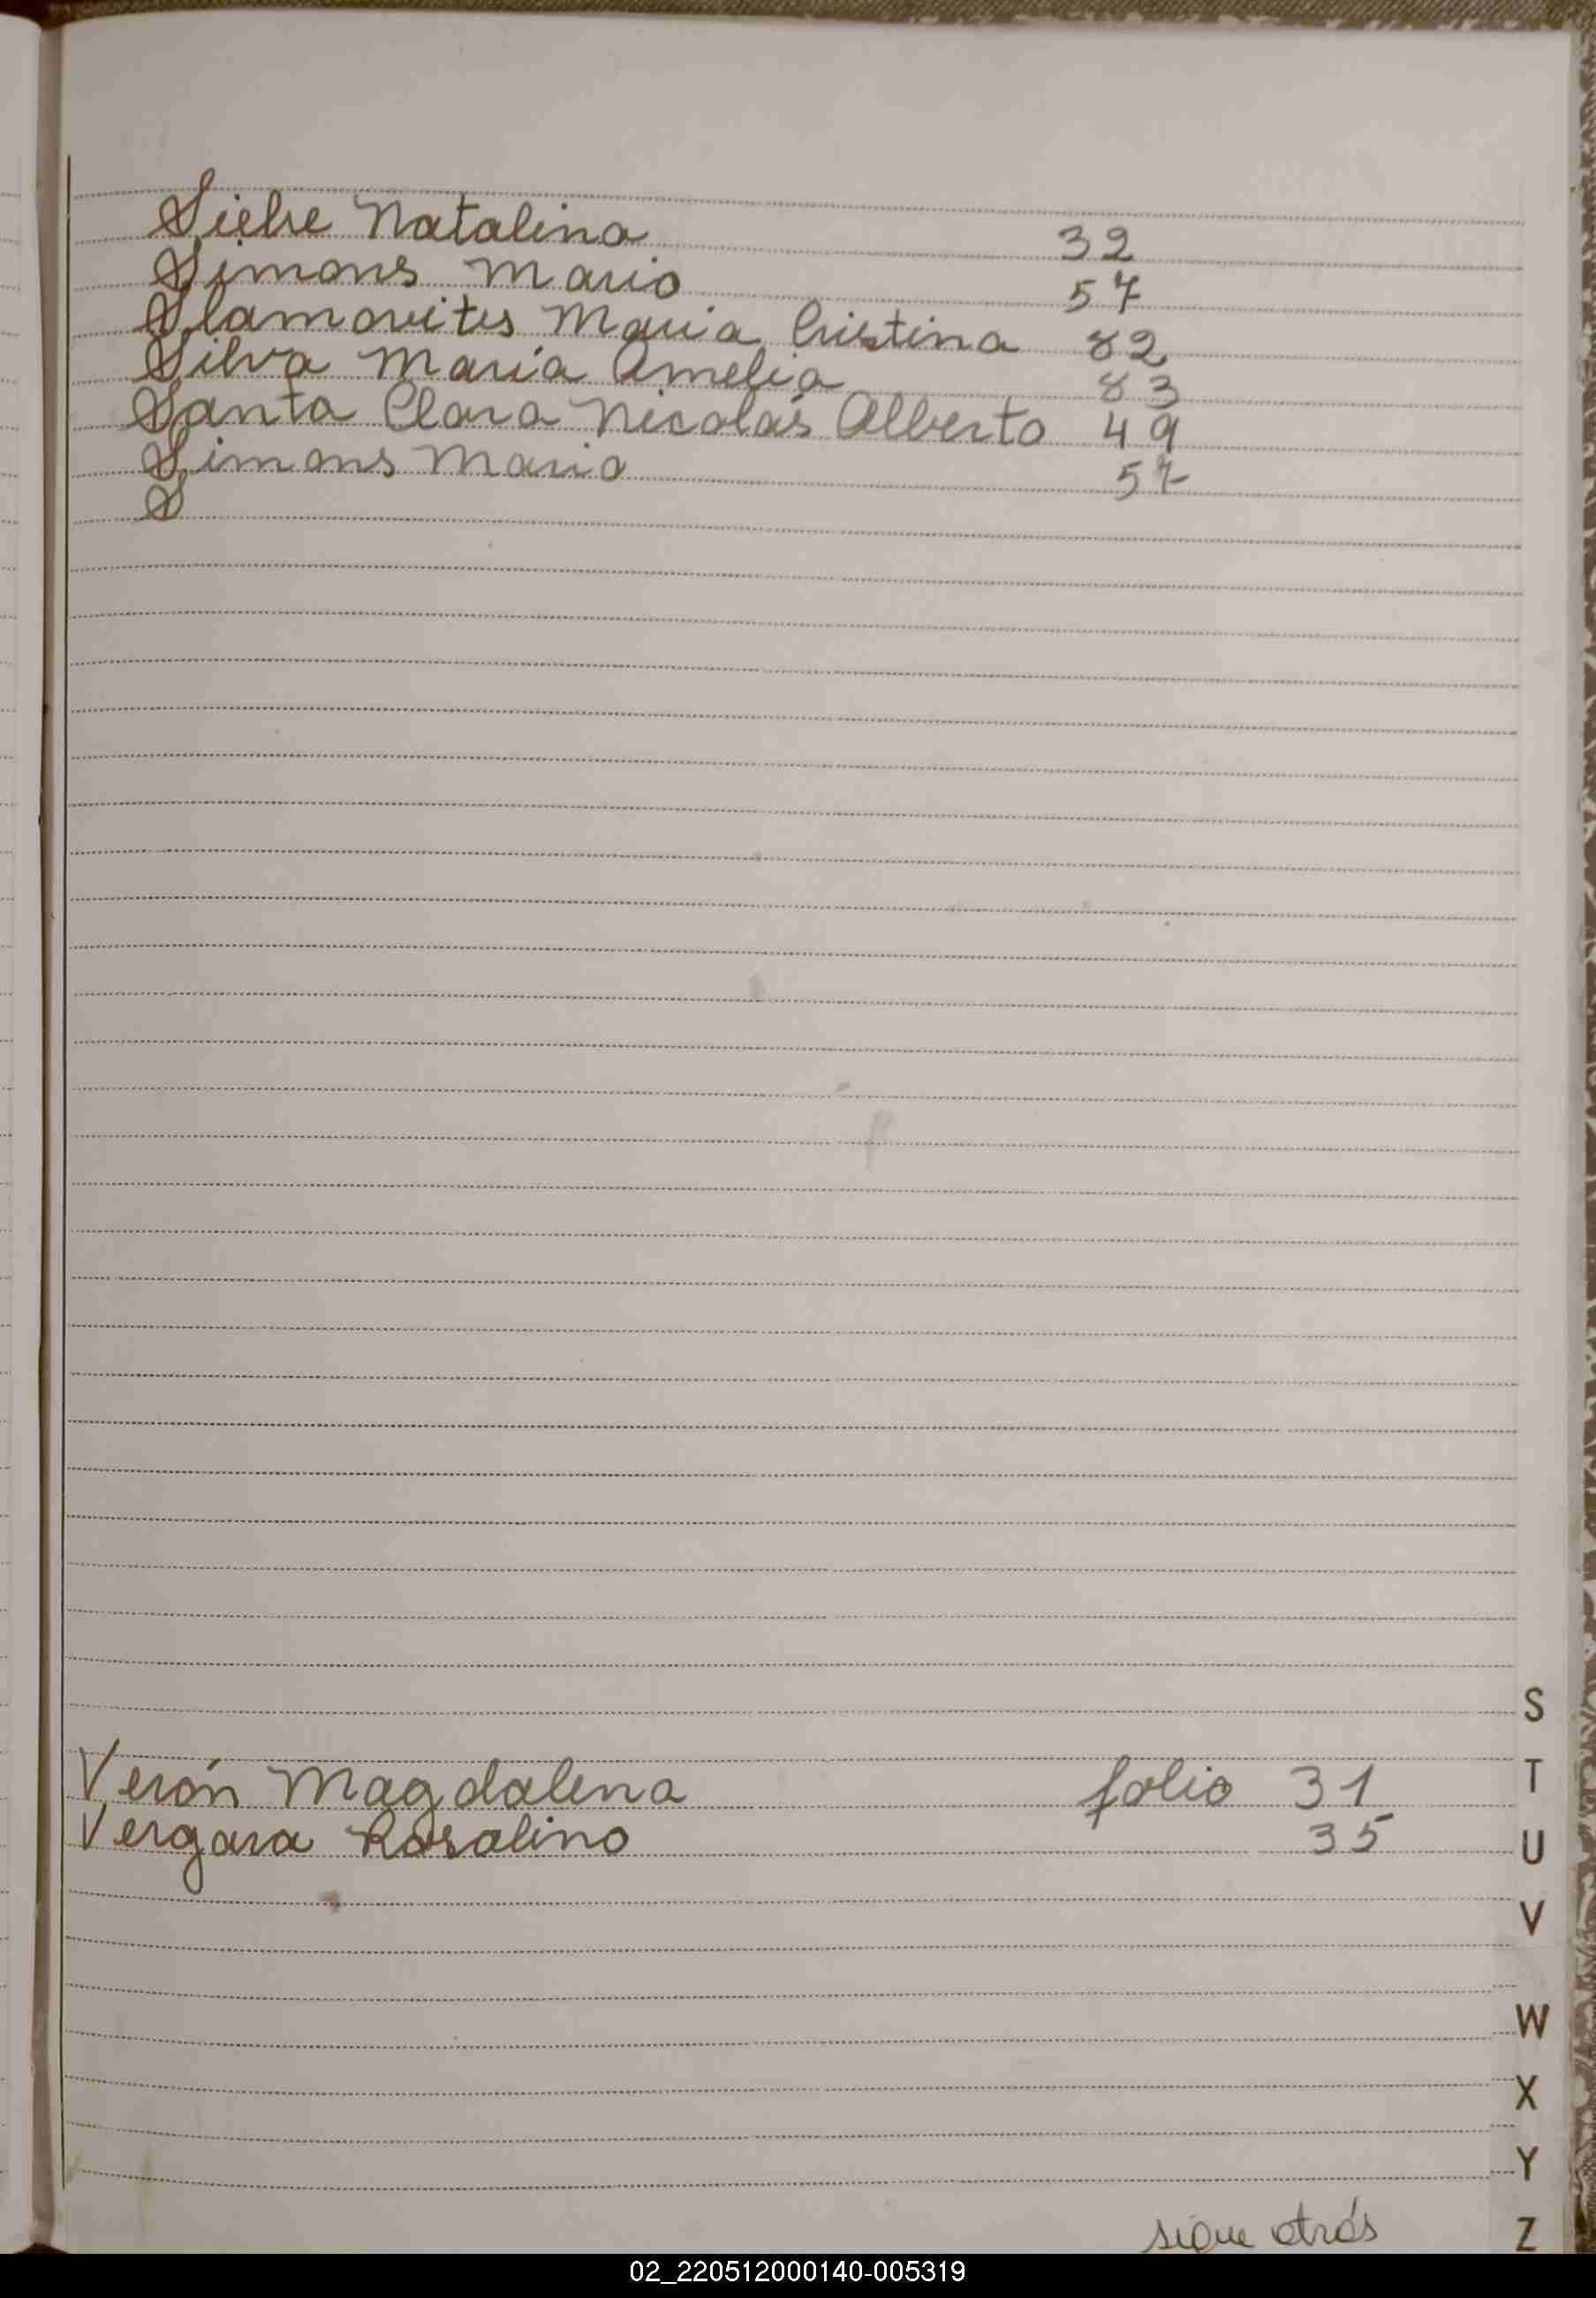 Siebre Natalina 32
Simons Mario 57
Slamovites Maria Cristina 82
Silva María Amelia 83
Santa Clara Nicolás Alberto 49
Simons Mario 57
S
S
T
Verón Magdalena folio 31
Vergara Rosalino 35
U
V
W
X
Y
sigue atrás
Z
02_220512000140-005319